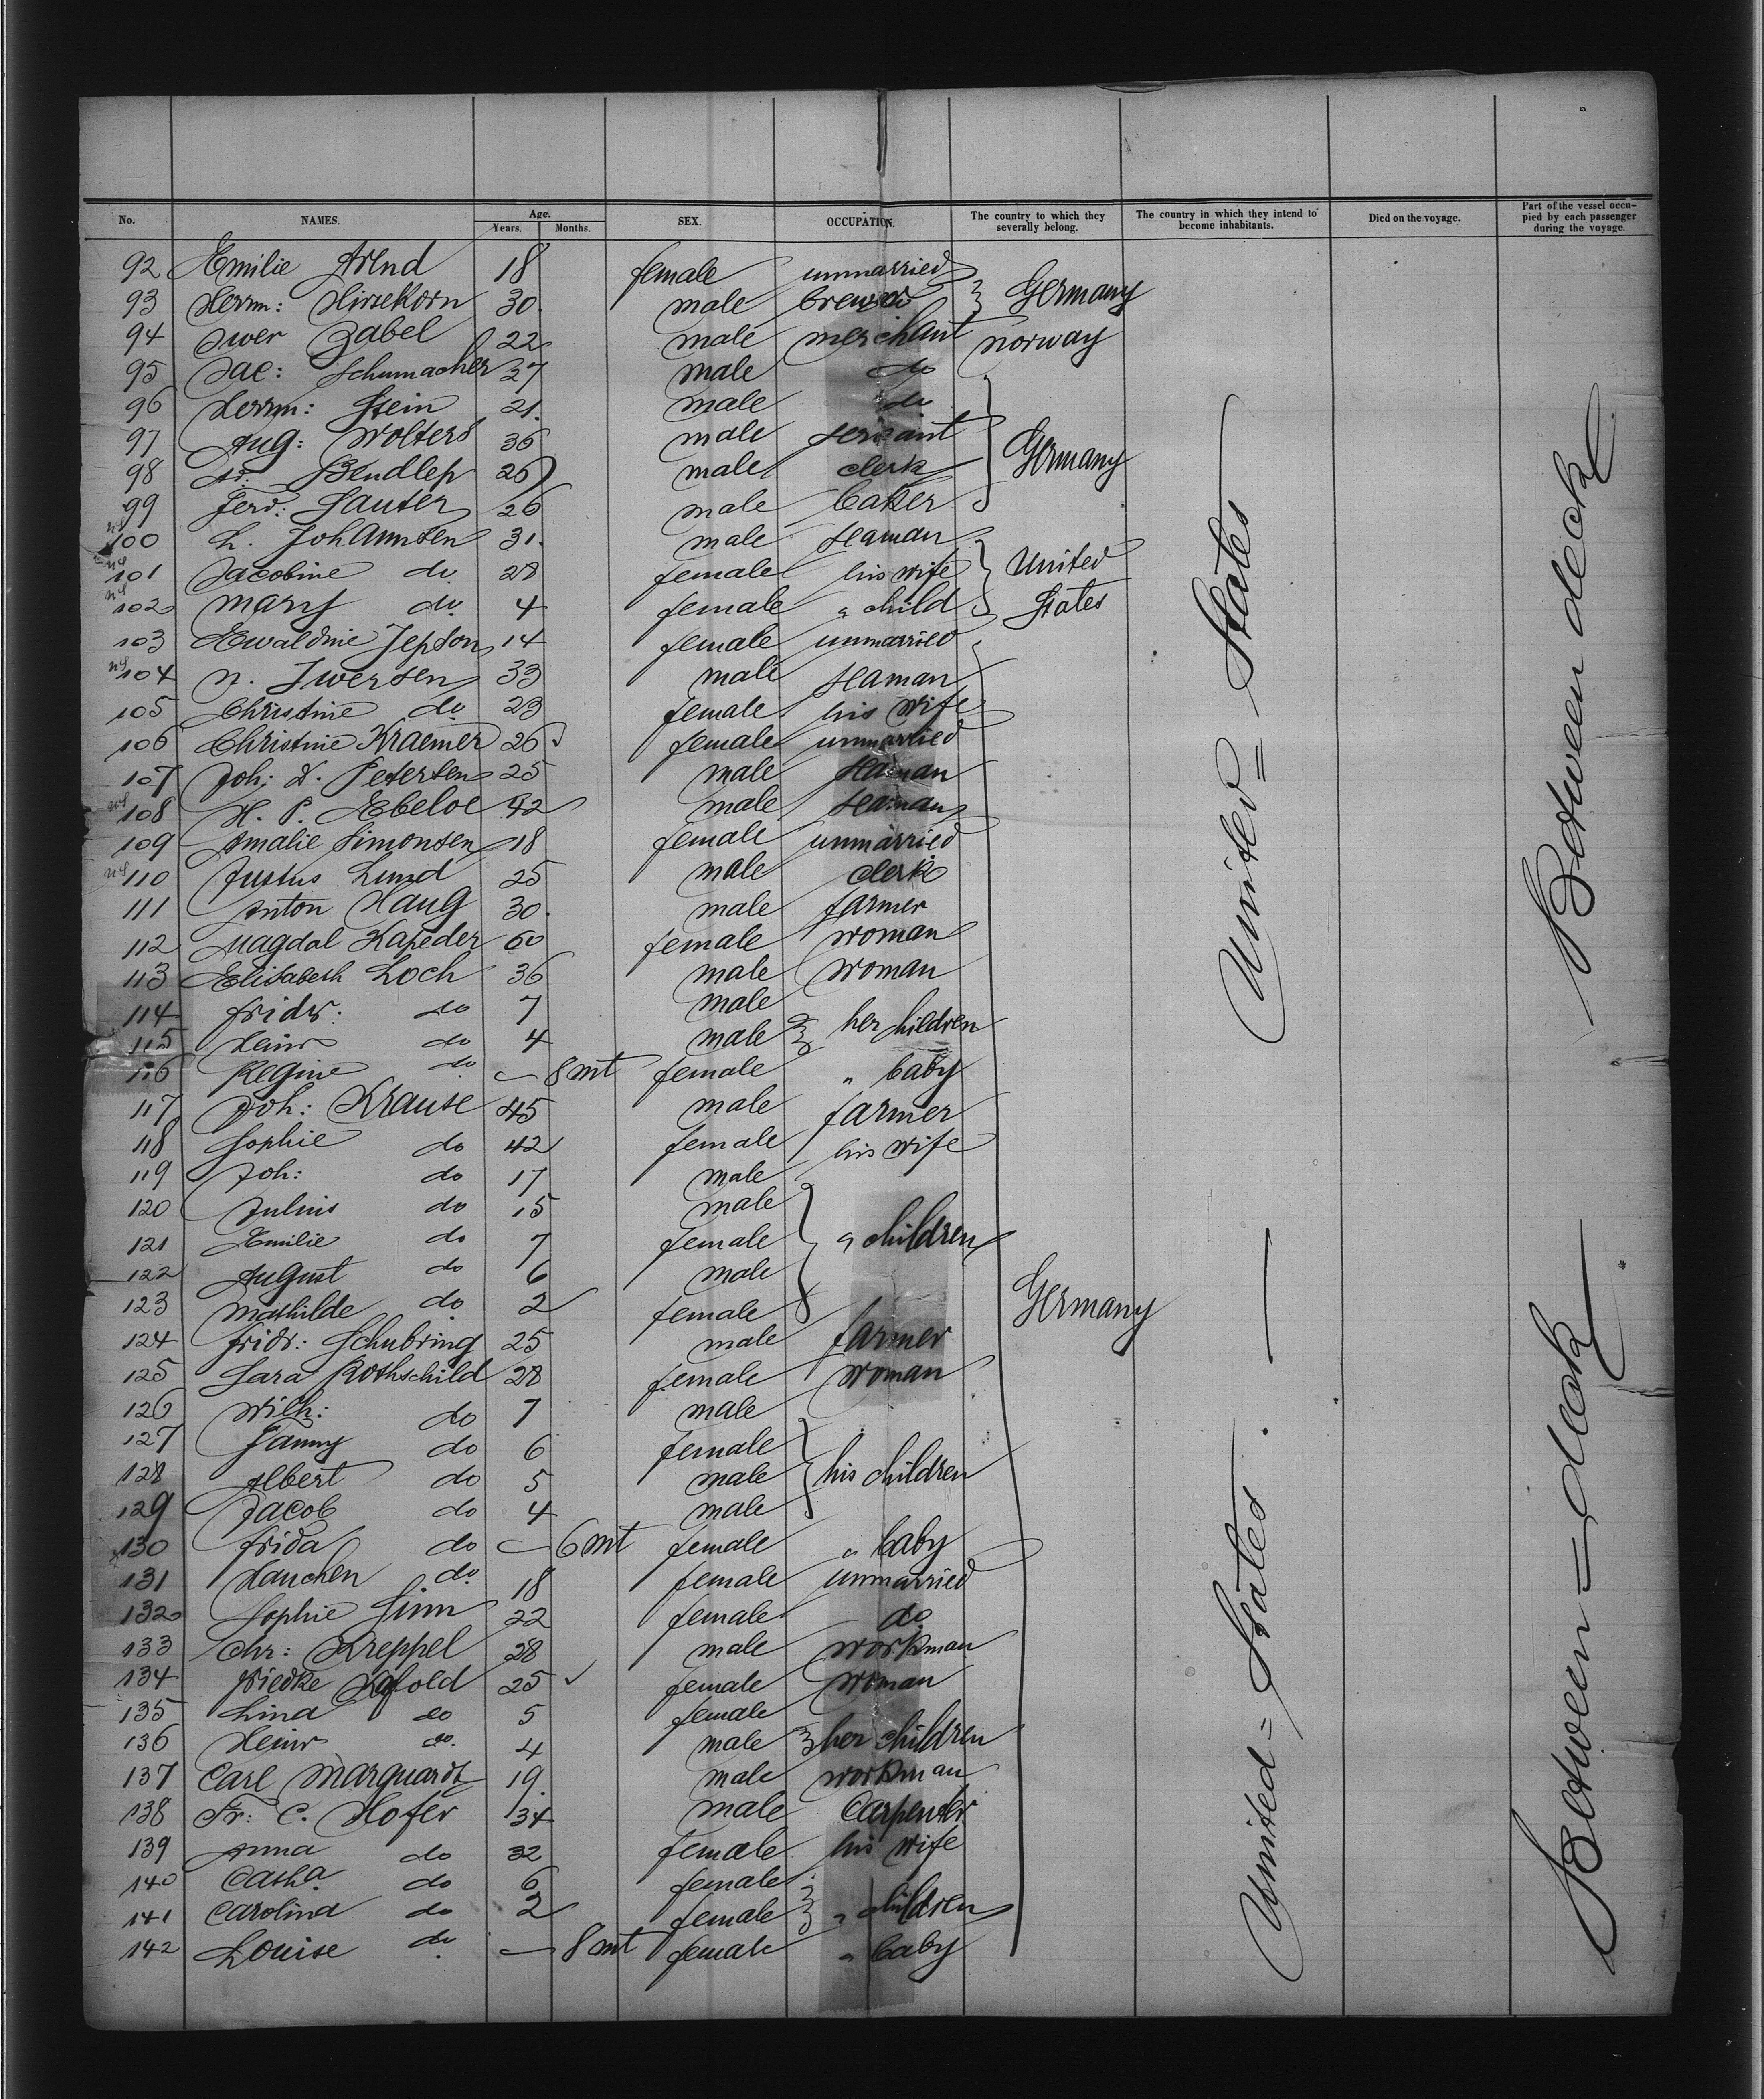 No. NAMES. Age. Years. Months. SEX. OCCUPATION. The country to which they severally belong. The country in which they intend to become inhabitants. Died on the voyage. Part of the vessel occupied by each passenger during the voyage.
92 Emilie Arend 18 female unmarried
93 Herrm: Hirsekorn 30. male brewer Germany
94 Iwer Zabel 22 male merchant Norway
95 Jac: Schumacher 37 male do
96 Herrm: Stein 21. male do
97 Aug: Wolters 36 male servant
98 Bendlep 26 male clerk Germany
99 Ferd: Sauter 26 male baker
100 L. Johannsen 31. male seaman
101 Jacobine do. 28 female his wife United
102 Mary do. 4 female " child States
103 Ewaldine Jepson 14 female unmarried
104 N. Iwersen 33 male seaman
105 Christine do 23 female his wife
106 Christine Kraemer 26 female unmarried
107 Joh: D. Petersen 25 male seaman
108 H. P. Ebeloe 42 male seaman
109 Amalie Simonsen 18 female unmarried
110 Justus Lund 25 male clerk
111 Anton Haug 30. male farmer
112 Magdal Kapeder 60 female woman
113 Elisabeth Loch 36 male woman
114 Fridr: do 7 male
115 Heinr do 4 male her children
116 Regine do. — 8 mt female " baby
117 Joh: Krause 45 male farmer
118 Sophie do 42 female his wife
119 Joh: do 17 male
120 Julius do 15 male
121 Emilie do 7 female " children
122 August do 6 male
123 Mathilde do. 2 female Germany
124 Fridr: Schubring 25 male farmer
125 Sara Rothschild 28 female woman
126 Wilh: do 7 male
127 Fanny do 6 female
128 Albert do 5 male his children
129 Jacob do 4 male
130 Frida do — 6 mt female " baby
131 Hanchen do. 18 female unmarried
132 Sophie Sinn 22 female do
133 Chr: Kreppel 28 male workman
134 Friedke 25 female woman
135 Lina do 5 female
136 Heinr do. 4 male her children
137 Carl Marquardt 19. male workman
138 Fr: C. Hofer 34 male carpenter
139 Anna do 32 female his wife
140 Casha do 6 female
141 Carolina do 2 female " children
142 Louise do. — 8 mt female " baby
United = States —
United = States.
Between deck
Between = deck